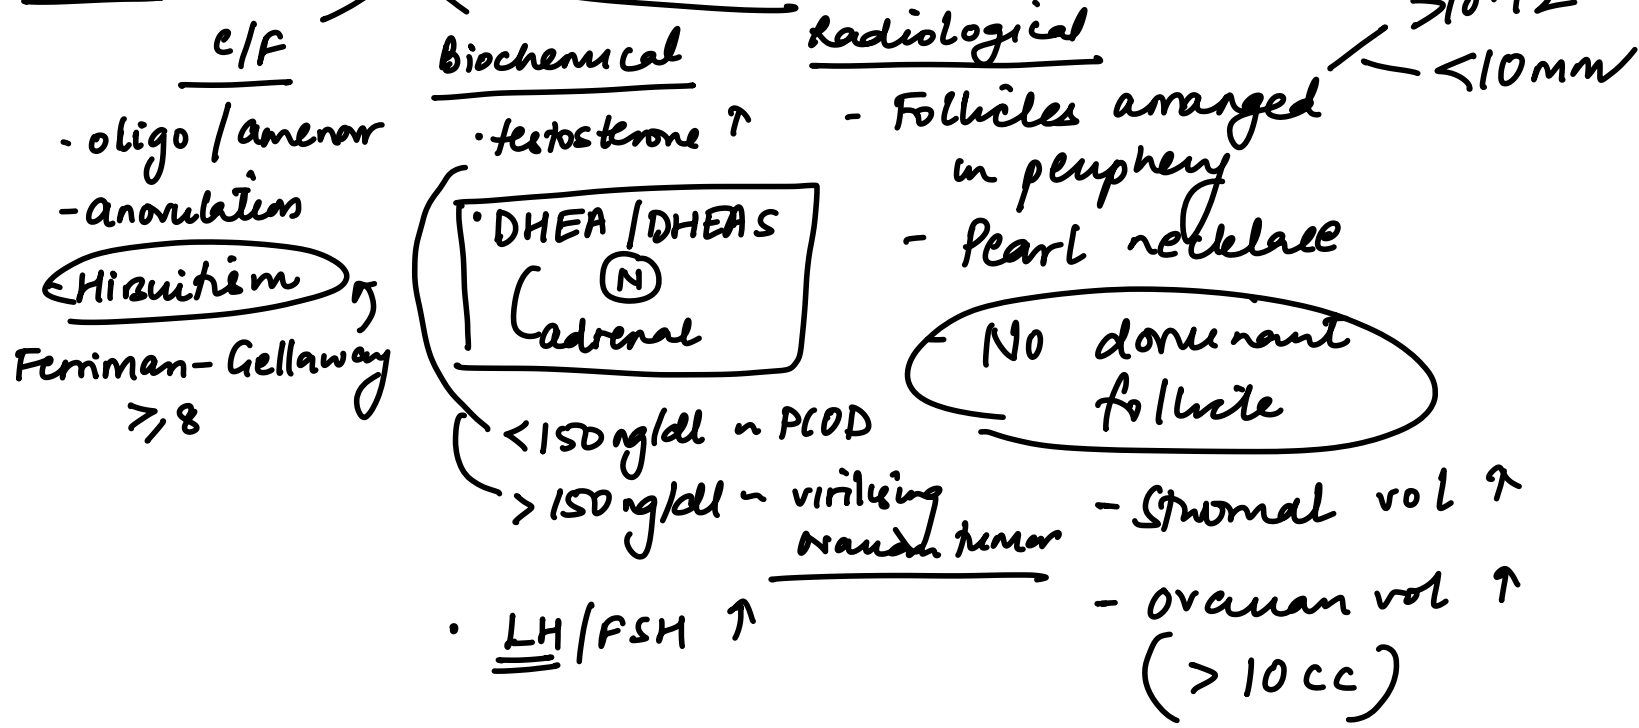 C/F
- oligo / amenorr
- anovulation
- Hirsuitism
Ferriman - Gellaway
≥ 8
Biochemical
· testosterone ↑
· DHEA / DHEAS
N
adrenal
< 150 ng/dl ~ PCOD
> 150 ng/dl ~ virilising
ovarian tumor
· LH/FSH ↑
Radiological
<10mm
- Follicles arranged
in periphery
- Pearl necklace
- No dominant
follicle
- Stromal vol ↑
- ovarian vol ↑
( > 10 cc )